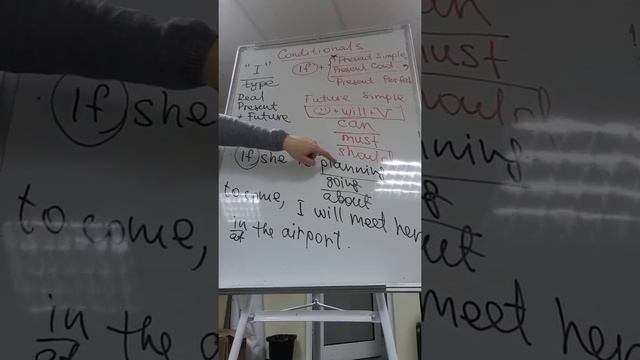 Conditionals
"I" type
Real
Present
+ Future
If + Present Simple
Present Cont.,
Present Perfect
Future Simple
+ will + V
can
must
should
If she planning
going
about
to come, I will meet her
in
at the airport.